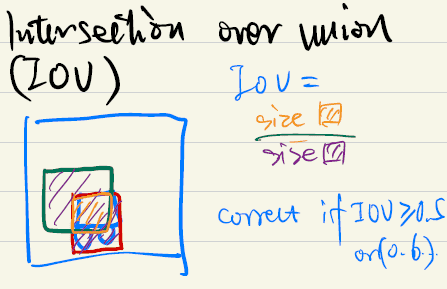 Intersection over union
(IOU)
IOU =
size
size
correct if IOU ≥ 0.5
or (0.6).